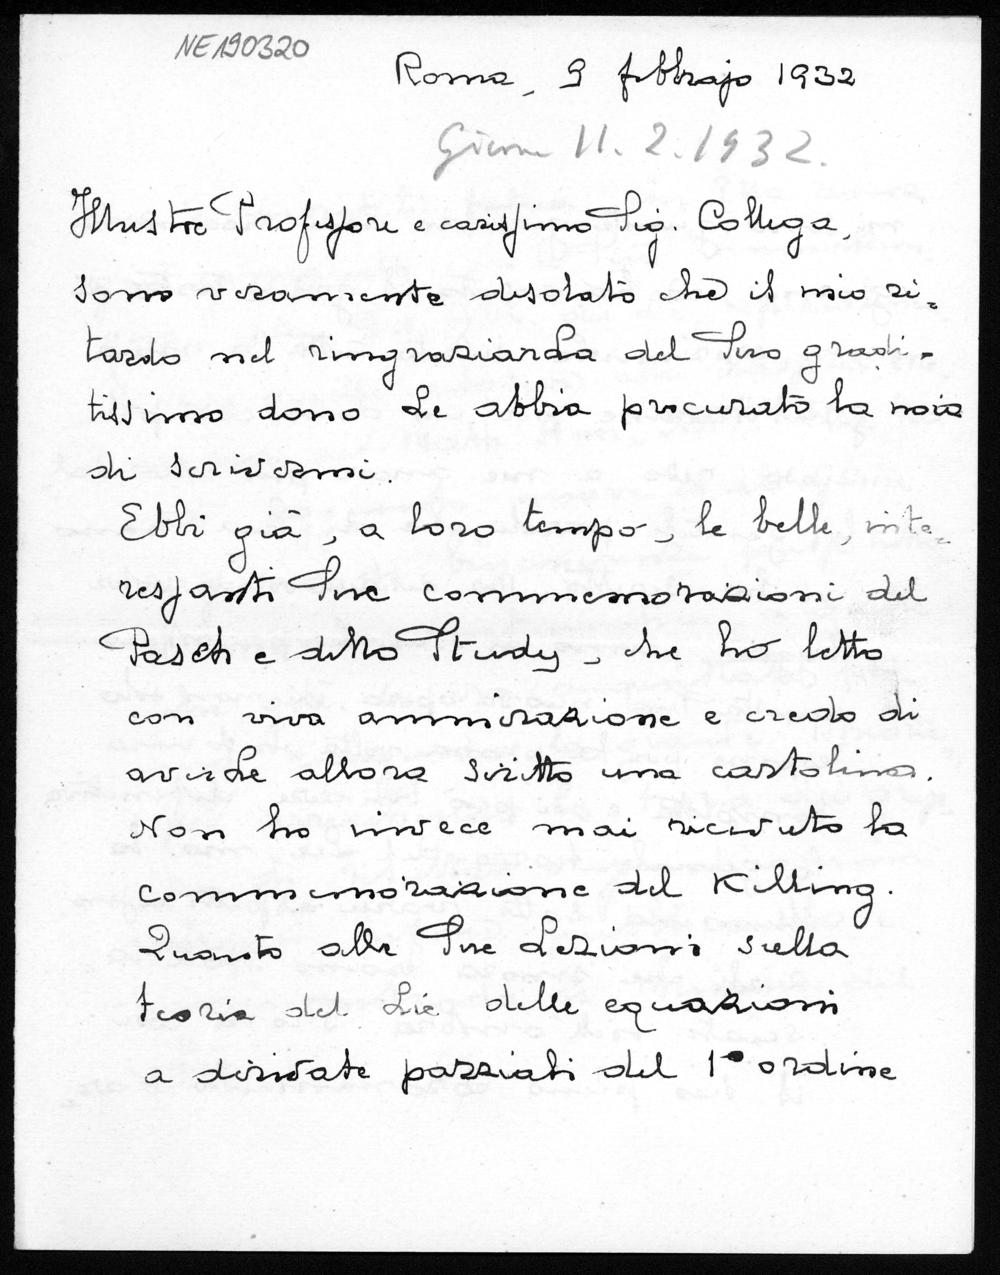 NE190320
Roma, 9 febbrajo 1932
11.2.1932.
Illustre Professore e carissimo Sig. Collega,
sono veramente desolato che il mio ri=
tardo nel ringraziarLa del Suo gradi=
tissimo dono Le abbia procurato la noia
di scrivermi.
Ebbi già, a loro tempo, le belle, inte=
ressanti Sue commemorazioni del
Pasch e dello Study, che ho letto
con viva ammirazione e credo di
averLe allora scritto una cartolina.
Non ho invece mai ricevuto la
commemorazione del Killing.
Quanto alle Sue Lezioni sulla
teoria del Lie delle equazioni
a derivate parziali del 1° ordine